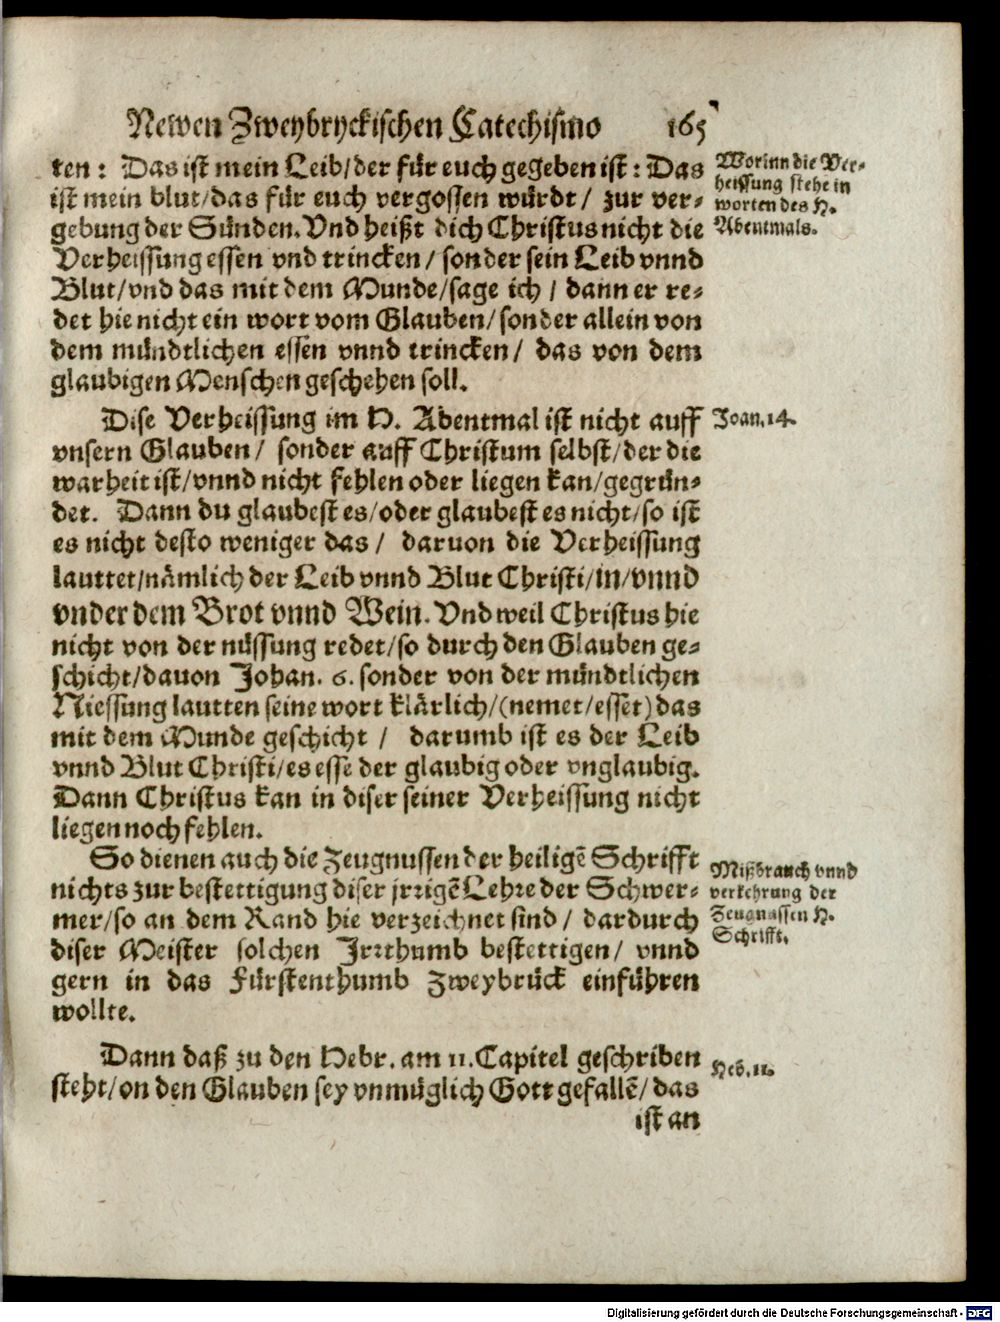 Newen Zweybryckischen Catechismo 165
ten: Das ist mein Leib/der für euch gegeben ist: Das
ist mein blut/das für euch vergossen würdt/ zur ver-
gebung der Sünden. Vnd heißt dich Christus nicht die
Verheissung essen vnd trincken/ sonder sein Leib vnnd
Blut/vnd das mit dem Munde/sage ich/ dann er re-
det hie nicht ein wort vom Glauben/sonder allein von
dem mündtlichen essen vnnd trincken/ das von dem
glaubigen Menschen geschehen soll.
Worinn die Ver-
heissung stehe in
worten des H.
Abentmals.
Dise Verheissung im H. Abentmal ist nicht auff
vnsern Glauben/ sonder auff Christum selbst/der die
warheit ist/vnnd nicht fehlen oder liegen kan/gegrün-
det. Dann du glaubest es/oder glaubest es nicht/so ist
es nicht desto weniger das/ daruon die Verheissung
lauttet/nämlich der Leib vnnd Blut Christi/in/vnnd
vnder dem Brot vnnd Wein. Vnd weil Christus hie
nicht von der nüssung redet/so durch den Glauben ge-
schicht/dauon Johan. 6. sonder von der mündtlichen
Niessung lautten seine wort klärlich/(nemet/esset) das
mit dem Munde geschicht/ darumb ist es der Leib
vnnd Blut Christi/es esse der glaubig oder vnglaubig.
Dann Christus kan in diser seiner Verheissung nicht
liegen noch fehlen.
Joan. 14.
So dienen auch die Zeugnussen der heiligē Schrifft
nichts zur bestettigung diser jrrigē Lehre der Schwer-
mer/so an dem Rand hie verzeichnet sind/ dardurch
diser Meister solchen Irrthumb bestettigen/ vnnd
gern in das Fürstenthumb Zweybrück einführen
wollte.
Mißbrauch vnnd
verkehrung der
Zeugnussen H.
Schrifft.
Dann daß zu den Hebr. am 11. Capitel geschriben
steht/on den Glauben sey vnmüglich Gott gefallē/das
Heb. 11.
ist an
Digitalisierung gefördert durch die Deutsche Forschungsgemeinschaft - DFG